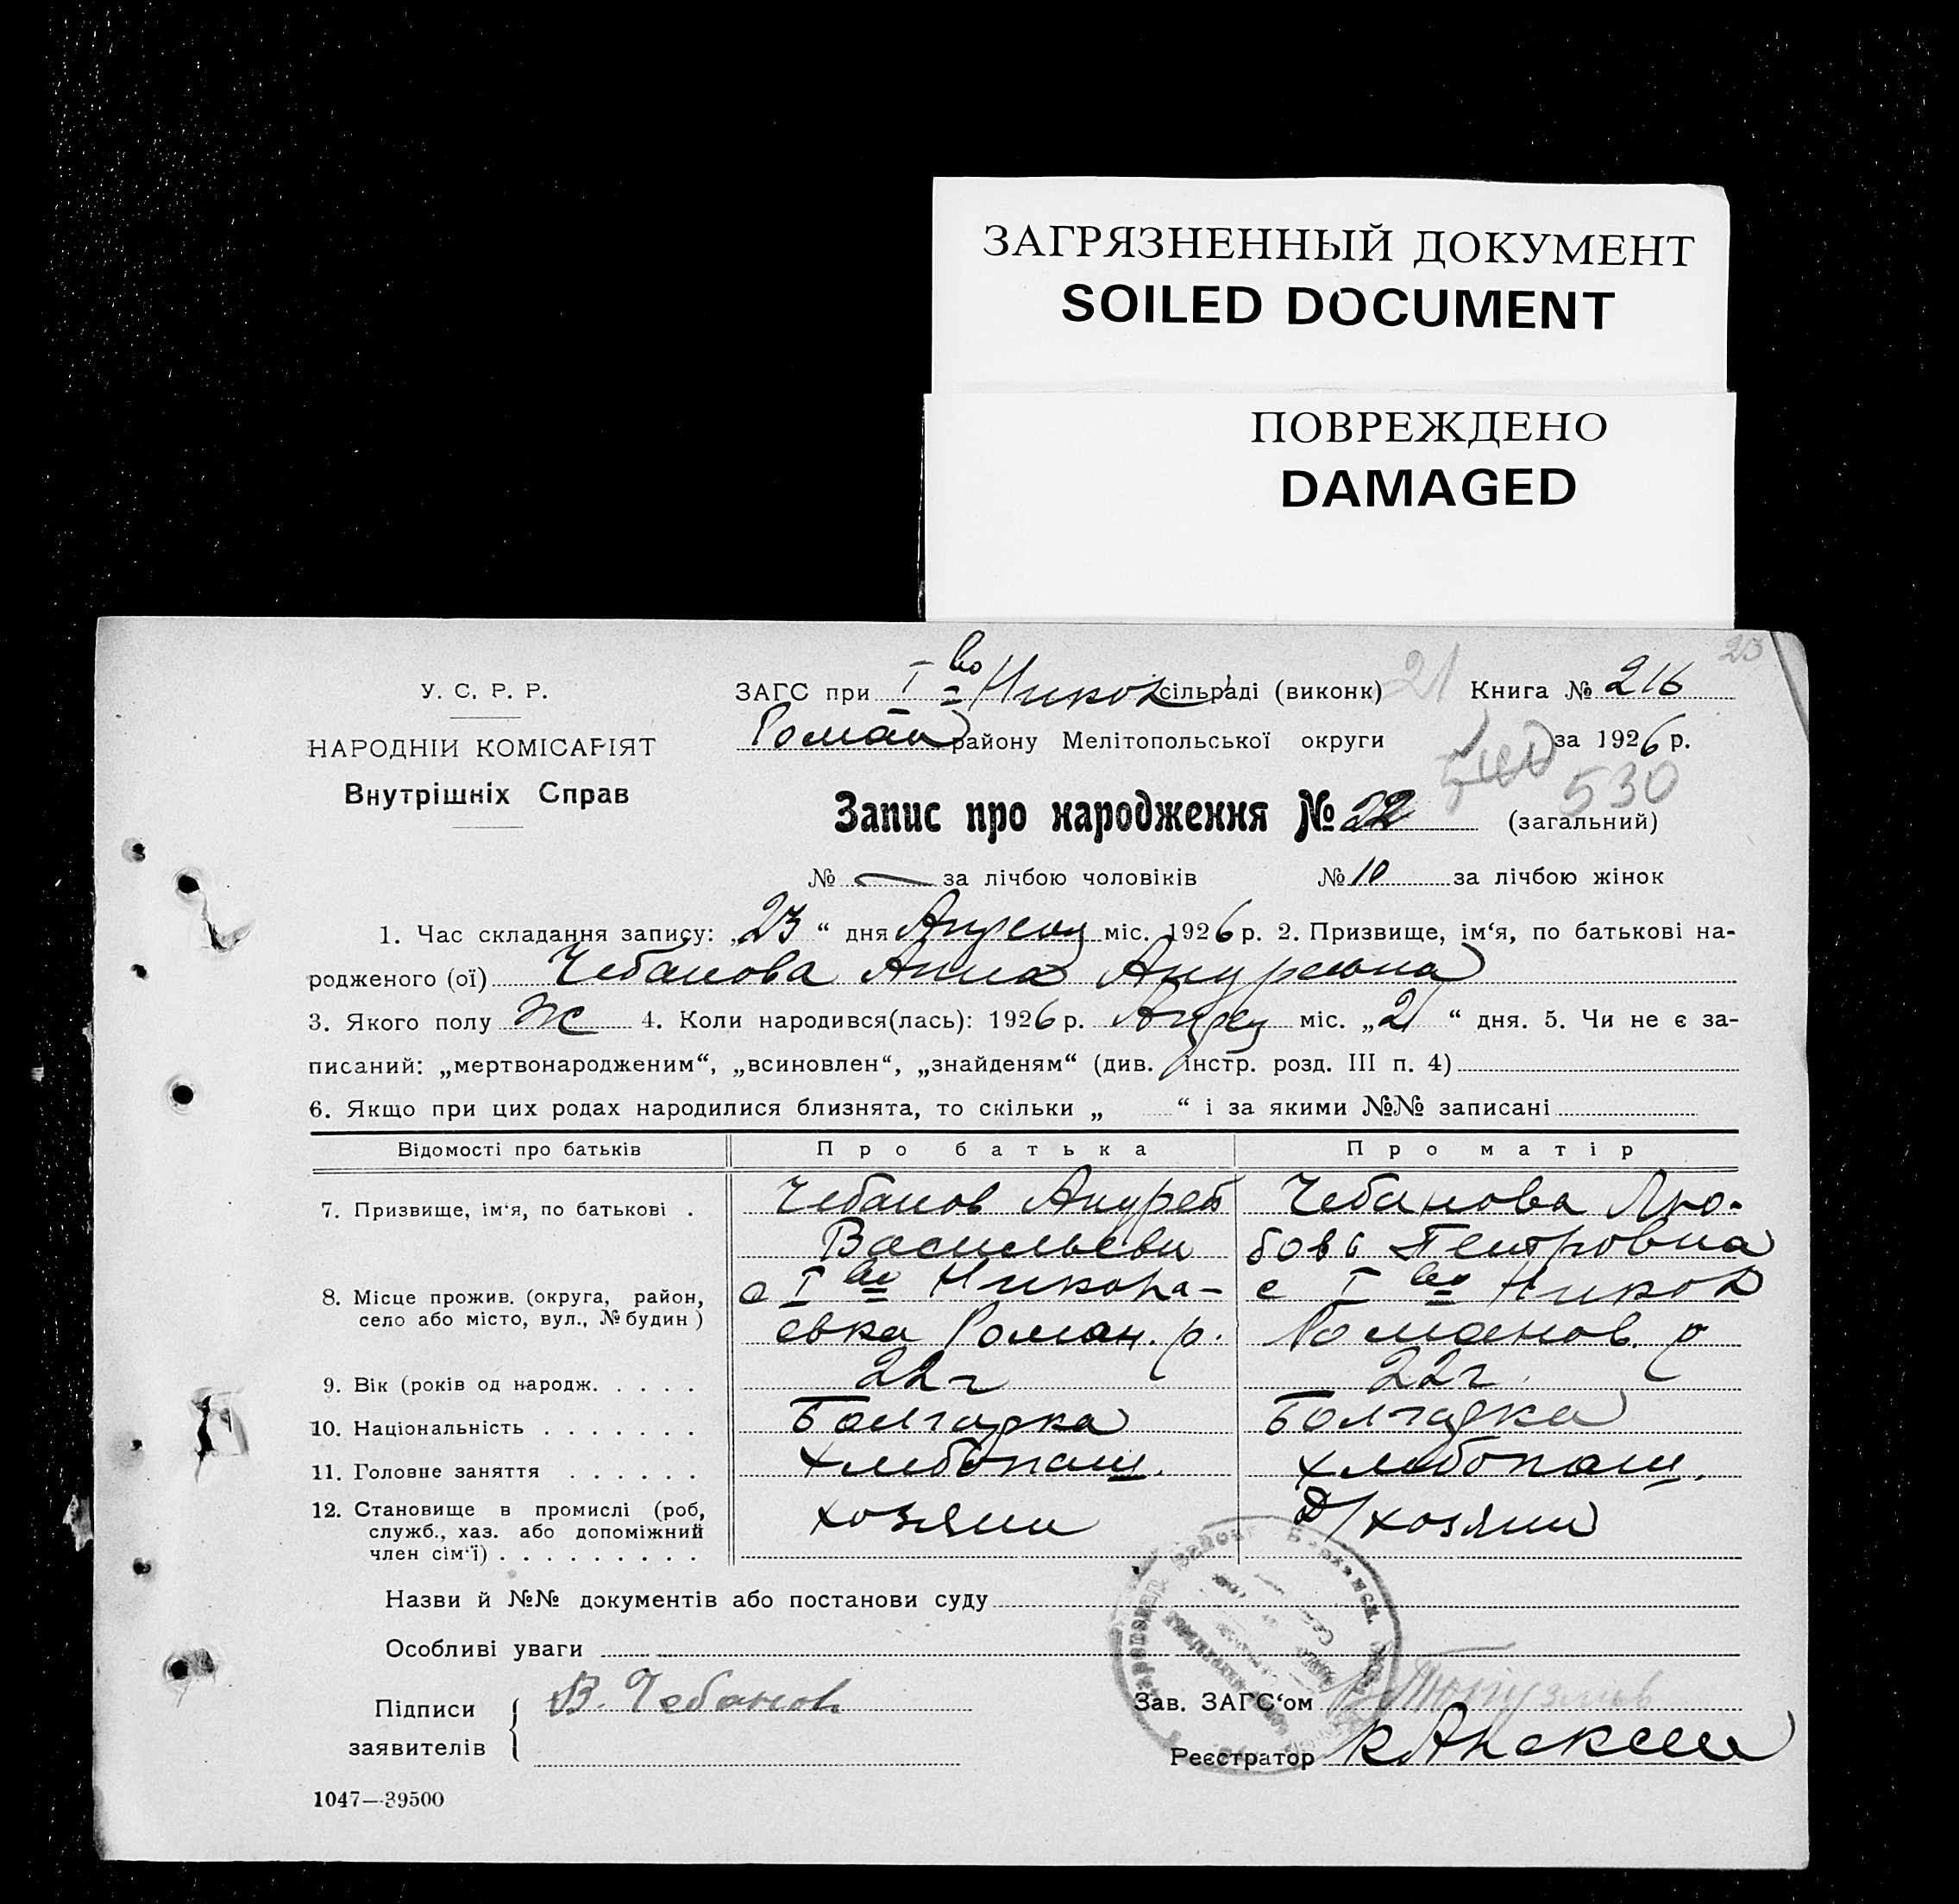 ЗАГРЯЗНЕННЫЙ ДОКУМЕНТ
SOILED DOCUMENT
ПОВРЕЖДЕНО
DAMAGED
23
У. С. Р. Р.
НАРОДНІЙ КОМІСАРІЯТ
Внутрішніх Справ
ЗАГС при I во Никол сільраді (виконк) 21 Книга № 216
Роман району Мелітопольської округи за 1926 р.
530
Запис про народження № 22 (загальний)
№ — за лічбою чоловіків № 10 за лічбою жінок
1. Час складання запису: „23“ дня Апреля міс. 1926 р. 2. Призвище, ім‘я, по батькові на-
родженого (ої) Чебанова Анна Андреевна
3. Якого полу Ж 4. Коли народився(лась): 1926 р. Апрел міс. „21“ дня. 5. Чи не є за-
писаний: „мертвонародженим“, „всиновлен“, „знайденям“ (див. інстр. розд. III п. 4)
6. Якщо при цих родах народилися близнята, то скільки „ “ і за якими №№ записані
Відомості про батьків Про батька Про матір
7. Призвище, ім‘я, по батькові . Чебанов Андрей Чебанова Лю-
Васильеви бовь Петровна
8. Місце прожив. (округа, район, село або місто, вул., № будин) с I во Никола- с I во Никол
евка Роман. р. Романов. р
9. Вік (років од народж. . . . . 22 г 22 г.
10. Національність . . . . . . . Болгарка Болгарка
11. Головне заняття . . . . . . хлебопаш. хлебопаш.
12. Становище в промислі (роб, хозяин д/хозяин
служб., хаз. або допоміжний
член сім‘ї) . . . . . . . . .
Назви й №№ документів або постанови суду
Особливі уваги
Підписи заявителів В. Чебанов
Зав. ЗАГС‘ом
Реєстратор
1047—39500